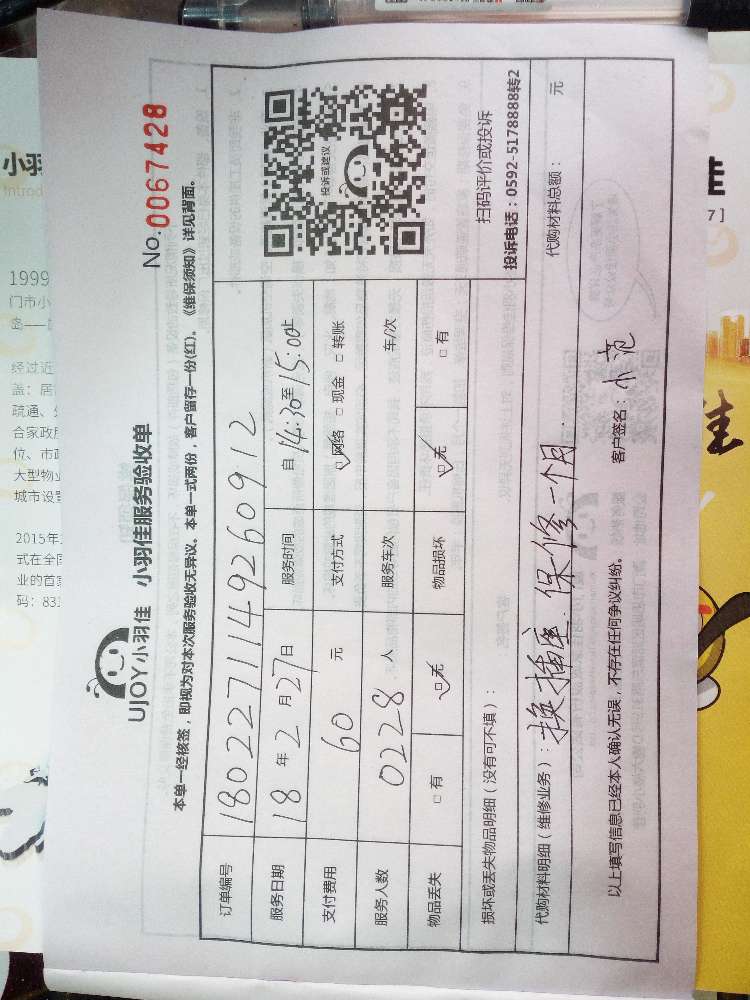 UJOY小羽佳 小羽佳服务验收单
No:0067428
本单一经核签，即视为对本次服务验收无异议。本单一式两份，客户留存一份(红)。《维保须知》详见背面。
订单编号 1802271149260912
服务日期 18 年 2 月 27 日 服务时间 自 14:30 至 15:00 止
支付费用 60 元 支付方式 ☑网络 □现金 □转账
服务人数 0228 人 服务车次 车/次
物品丢失 □有 ☑无 物品损坏 ☑无 □有
投诉或建议
扫码评价或投诉
投诉电话：0592-5178888转2
损坏或丢失物品明细（没有可不填）：
代购材料明细（维修业务）：换插座.保修一个月. 代购材料总额： 元
以上填写信息已经本人确认无误，不存在任何争议纠纷。 客户签名：小范
小羽
Introd
1999
门市小
经过近
盖：居
疏通、
合家政
位、市政
大型物业
城市设
2015年
式在全国
业的首
码：831
佳
7 ]
佳